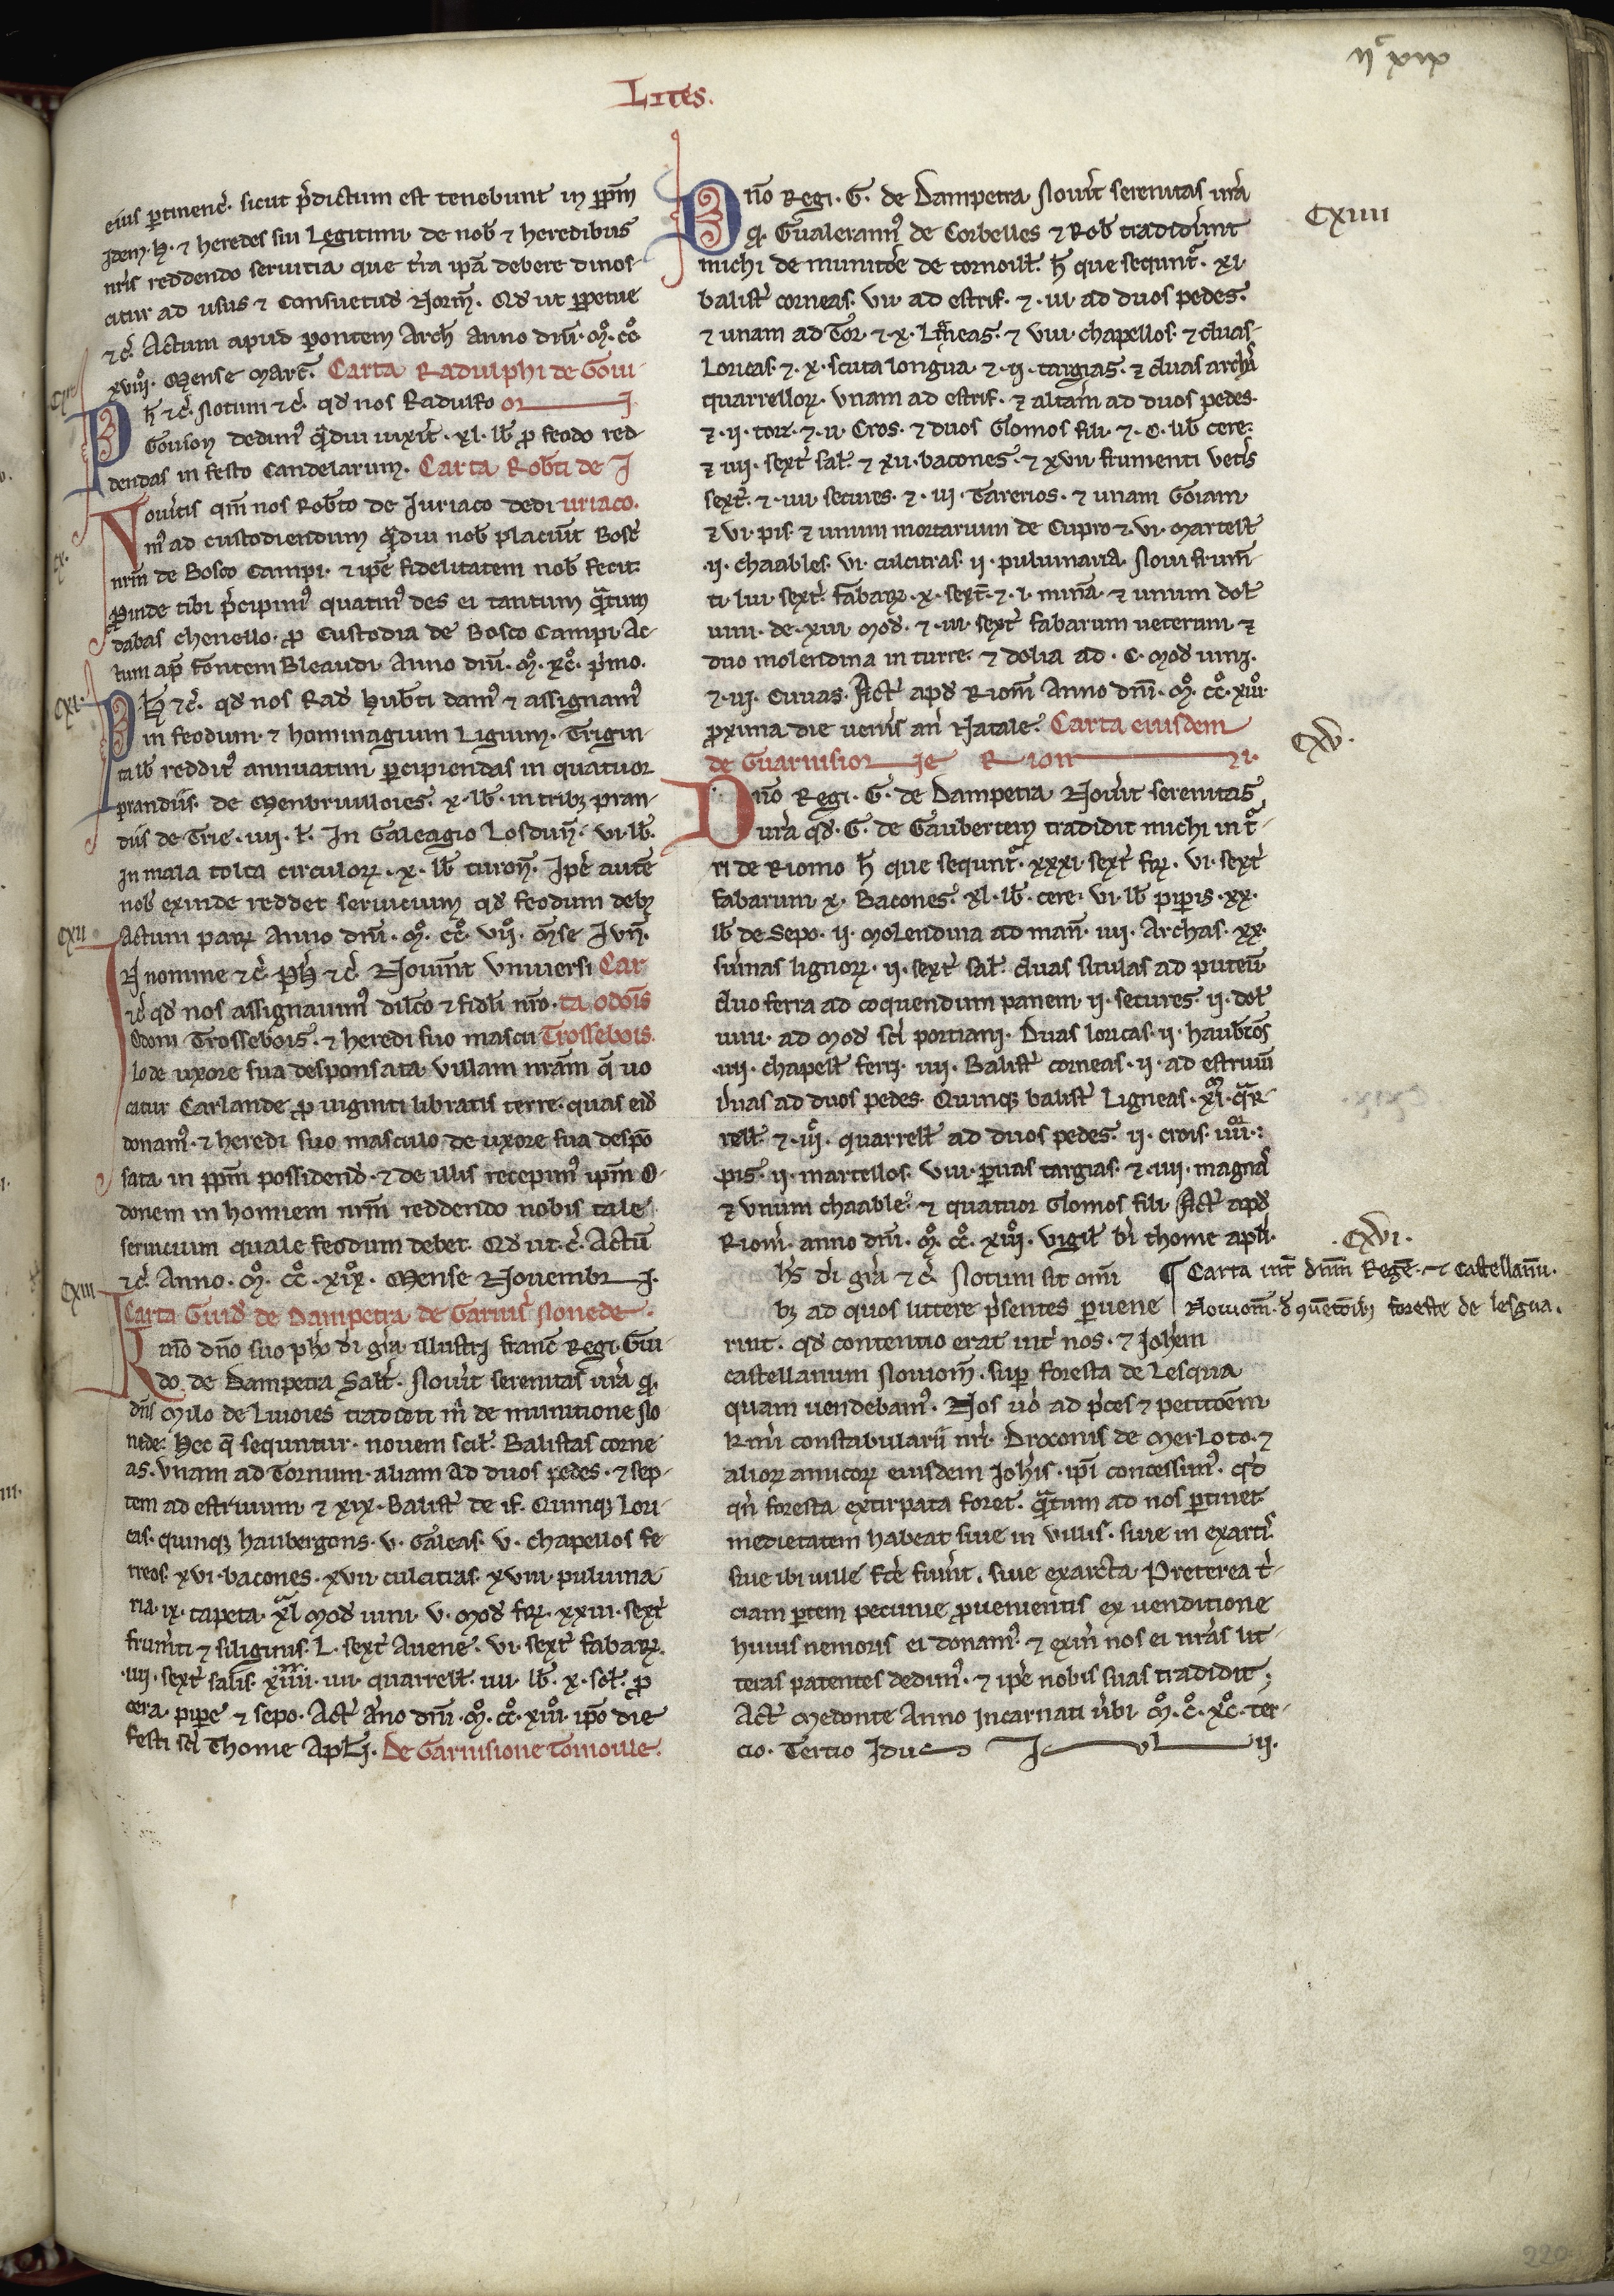 IIᶜ XIX
Lites.
eius ꝑtinenc̃. sicut p̃dictum est tenebunt in ꝑpm̃
Idem. H. ⁊ heredes sui Legitimi de nob̃ ⁊ heredibus
nr̃is reddendo seruitia que t̃ra ip̃a debere dinos-
citur ad usus ⁊ Consuetud̃ Norm̃. Qd̃ ut ꝑpetue
⁊c̃. Actum apud pontem Arch̃ Anno dñi. mº. ccº
xviiiº. Mense Marc̃. Carta Radulphi de Goui-
CIX
Ph̃ ⁊c̃. Notum ⁊c̃. qd̃ nos Radulfo on
Gouion dedim⁹ q̃diu uixĩt. xl. lb̃ ꝓ feodo red-
dendas in festo Candelarum. Carta Rob̃ti de I
CX.
Nou̾itis qm̃ nos Rob̃to de Iuriaco dedi uriaco.
m⁹ ad custodiendum q̃diu nob̃ placũit Bosc̃
nrm̃ de Bosco Campi. ⁊ ip̃e fidelitatem nob̃ fecit.
Ꝓinde tibi p̃cipim⁹ quatin⁹ des ei tantum q̃tum
dabas chenello. ꝓ Custodia de Bosco Campi. Ac-
tum ap̃ fontem Bleaudi Anno dñi. mº. xcº. p̃mo.
CXI.
Ph̃ ⁊c̃. qd̃ nos Rad̃ Hub̃ti dam⁹ ⁊ assignam⁹
in feodum ⁊ hominagium Ligium. Trigin-
ta lb̃ reddit⁹ annuatim ꝑcipiendas in quatuor
prandiis de Menbruilloies. x. lb̃. in tribꝫ pran-
diis de Trie. iiii. l̃. In Galeagio Losduñ. vi. lb̃.
In mala tolta circuloꝝ. x. lb̃ turoñ. Ip̃e autẽ
nob̃ exinde reddet seruicium qd̃ feodum debꝫ
Actum paꝝ Anno dñi. mº. ccº. viiº. m̃se Iuñ.
CXII
IN nomine ⁊c̃. Ph̃ ⁊c̃. Nou̾int Vniuersi Car
⁊c̃ qd̃ nos assignauim⁹ dil̃co ⁊ fid̃li nr̃o. ta odõis
Odoni Trossebois. ⁊ heredi suo mascu Trossebois.
lo de uxore sua desponsata villam nrãm q̃ uo
catur Carlande ꝓ uiginti libratis terre. quas eid̃
donam⁹. ⁊ heredi suo masculo de uxore sua despõ
sata in ꝑpm̃ possidend̃. ⁊ de illis recepim⁹ ipm̃ O-
donem in homiem nrm̃ reddendo nobis tale
seruicium quale feodum debet. Qd̃ ut. c̃. Actũ
⁊c̃. Anno. mº. ccº. xixº. Mense Nouembri.
CXIII
Carta Guid̃ de Dampetra de Garnis̃ Nonede.
Kar̃mo dño suo ph̃o di gr̃a illustri franc̃ Regi Gui-
do de Dampetra Sal̃t. Nou̾it serenitas ur̃a q̃.
dñs Milo de Liuories tradidit m̃ de munitione No
nede. Hec q̃ sequntur. nouem scil̃. Balistas corne
as. Vnam ad Tornum. aliam ad duos pedes. ⁊ sep-
tem ad estriuum ⁊ XIX. Balist̃ de if. Quinqꝫ Lori-
cas. quinqꝫ haubergons. v. Gal̃eas. v. chapellos fe-
rreos. xvi. bacones. xvii. culcitras. xviii. puluina
ria. ix. tapeta. xl. mod̃ uini. v. mod̃ fꝝ. xxiii. sext̃
frum̃ti ⁊ siliginis. L. sext̃ Auene. vi. sext̃ fabaꝝ.
iiii. sext̃ salis. xiiii. quarrell̃. iiii. lb̃. x. sol̃. ꝓ
cera. pipe ⁊ sepo. Act̃ ãno dñi. mº. ccº. xiiiº. ip̃o die
festi sc̃i Thome Apl̃i. De Garnisione Tornoille.
CXIIII
Dño Regi. G. de Dampetra Nou̾it serenitas ur̃a
q̃. Gualerann⁹ de Corbelles ⁊ Rob̃ tradidr̃unt
michi de munitõe de tornoill̃. h̃ que sequnt̃. xi.
balist̃ corneas. vii. ad estrif. ⁊. iii. ad duos pedes.
⁊ unam ad Tor̃. ⁊. x. Lig̃neas. ⁊ viii. chapellos. ⁊ duas
Loricas. ⁊. x. scuta longua. ⁊. ii. targias. ⁊ duas arch̃
quarrelloꝝ. Vnam ad estrif. ⁊ altam̃ ad duos pedes.
⁊. ii. torr̃. ⁊. ii. Cros. ⁊ duos Glomos fili. ⁊. C. lib̃ cere.
⁊ iiii. sext̃ sal̃. ⁊ xii. bacones. ⁊ xvii. frumenti vet̃is
sext̃. ⁊. iiii. secures. ⁊. iii. Tarerios. ⁊ unam Goiam
⁊ vi. pis. ⁊ unum mortarium de Cupro ⁊. vi. martell̃
.ii. chaables. vi. culcitras. ii. puluinaria. Noui frum̃-
ti. liii. sext̃. fabaꝝ. x. sext̃. ⁊. i. minã. ⁊ unum dol̃
uini. de. xiii. Mod̃. ⁊. iii. sext̃ fabarum ueterum ⁊
duo molendina in turre. ⁊ dolia ad. C. mod̃ uini.
⁊. iii. Cuuas. Act̃ apd̃ Riom̃ Anno dñi. mº. ccº. xiiiº.
ꝓxima die uen̾is an̾ Natale. Carta eiusdem
CXV.
de Guarnisione Riomi.
Dño Regi. G. de Dampetra Nou̾it serenitas
ur̃a qd̃. G. de Gaubertem tradidit michi in t̾-
ri de Riomo h̃ que sequnt̃. xxxi. sext̃ fꝝ. vi. sext̃
fabarum. x. Bacones. xl. lb̃. cere. vi. lb̃ pip̾is. xx.
lb̃ de Sepo. ii. Molendina ad man̾. iiii. Archas. xx.
sũmas lignoꝝ. ii. sext̃ sal̃. duas situlas ad puteũ
duo ferra ad coquendum panem. ii. secures. ii. dol̃
uini. ad mod̃ sc̃i portiani. Duas loricas. ii. haub̃tõs
.iiii. chapell̃ ferri. iiii. Balist̃ corneas. ii. ad estriuũ
duas ad duos pedes. Quinqꝫ balist̃ Ligneas. xi. q̃r-
rell̃. ⁊. iiiᶜ. quarrell̃ ad duos pedes. ii. crois. iiii.
pis. ii. martellos. viii. ꝑuas targias. ⁊. iiii. magñas
⁊ Vnum chaable. ⁊ quatuor Glomos fili. Act̃ apd̃
Riom̃. anno dñi. mº. ccº. xiiiº. Vigil̃ bi̾ thome apl̃i.
.CXVI.
¶ Carta int̃ dñm Regẽ. ⁊ castellanũ.
Nouiom̃. de foreste de lesgua.
h̃s di gr̃a ⁊c̃. Notum sit omi
bꝫ ad quos littere p̃sentes ꝑuene
rint. qd̃ contentio erat int̃ nos. ⁊ Joh̃em
castellanum Nouiom̃. sup̃ foresta de Lesqua
quam uendebam⁹. Nos ũo ad p̃ces ⁊ petitõem
Kar̃mi constabularii nr̃i. Droconis de Merloto. ⁊
alioꝝ amicoꝝ eiusdem Joh̃is. ip̃i concessim⁹. qd̃
qñ foresta extirpata foret. q̃tum ad nos ꝑtinet
medietatem habeat siue in Villis. siue in exart̃is
siue ibi uille fc̃e fiun̾t. siue exarcta. Preterea t̾-
ciam ꝑtem pecunie ꝓuenientis ex uenditione
huius nemoris ei donam⁹. ⁊ exin̾ nos ei nr̃as lit-
teras patentes dedim⁹. ⁊ ip̃e nobis suas tradidit;
Act̃ Medonte Anno Incarnati ũbi. mº. cº. xcº. ter-
cio. Tertio Idus Iulii.
220